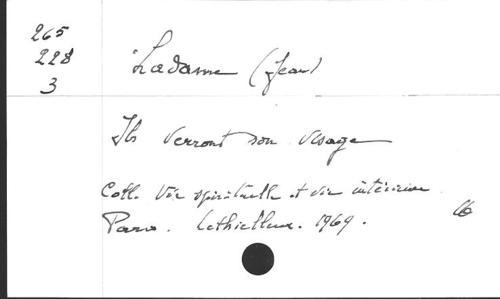 265
228
3
Ladame (Jean)
Ils verront son visage
Coll. Vie spirituelle et vie intérieure.
Paris. Lethielleux. 1969. 16